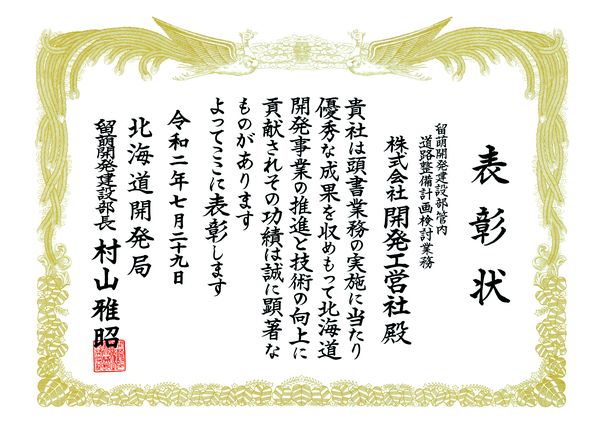 表彰状
留萌開発建設部管内
道路整備計画検討業務
株式会社 開発工営社 殿
貴社は頭書業務の実施に当たり
優秀な成果を収めもって北海道
開発事業の推進と技術の向上に
貢献されその功績は誠に顕著な
ものがあります
よってここに表彰します
令和二年七月二十九日
北海道開発局
留萌開発建設部長 村山雅昭